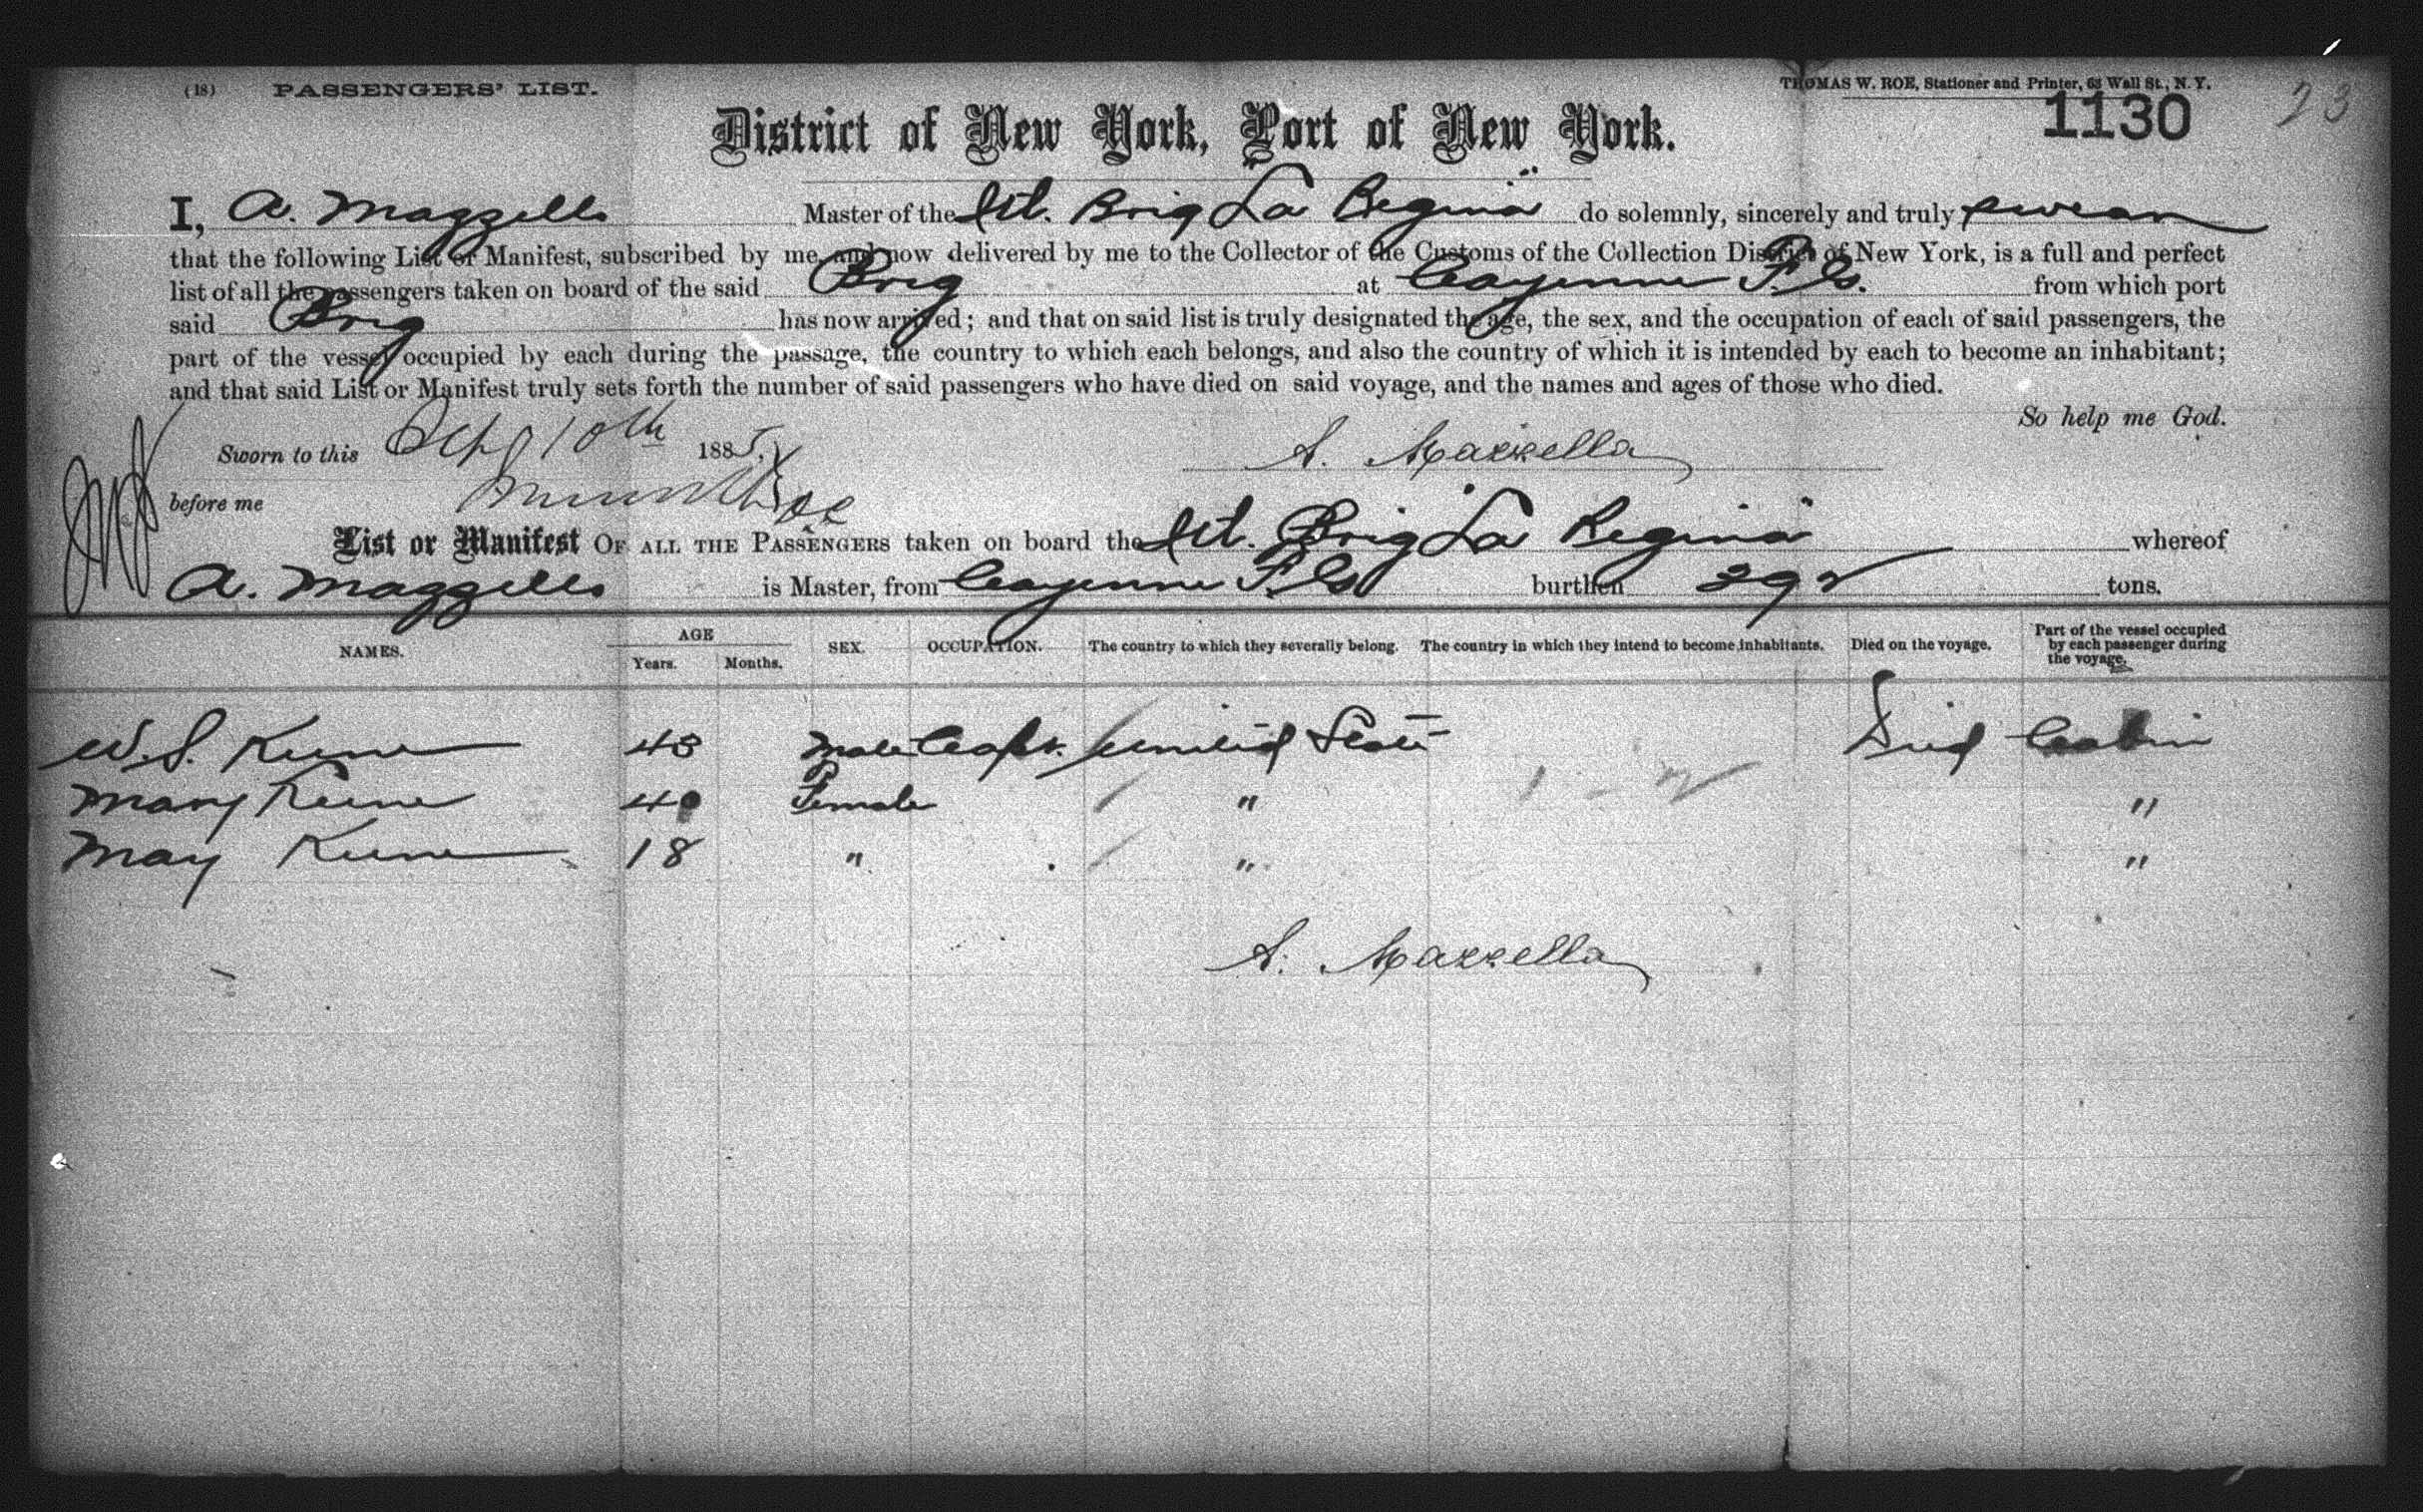 (18) PASSENGERS' LIST.
THOMAS W. ROE, Stationer and Printer, 63 Wall St., N. Y.
1130 23
District of New York, Port of New York.
I, A. Mazzella Master of the It. Brig "La Regina" do solemnly, sincerely and truly swear
that the following List or Manifest, subscribed by me, and now delivered by me to the Collector of the Customs of the Collection District of New York, is a full and perfect
list of all the passengers taken on board of the said Brig at Cayenne F. G. from which port
said Brig has now arrived; and that on said list is truly designated the age, the sex, and the occupation of each of said passengers, the
part of the vessel occupied by each during the passage, the country to which each belongs, and also the country of which it is intended by each to become an inhabitant;
and that said List or Manifest truly sets forth the number of said passengers who have died on said voyage, and the names and ages of those who died.
So help me God.
Sworn to this Sep 10th 1885. A. Mazzella
before me
List or Manifest OF ALL THE PASSENGERS taken on board the It. Brig "La Regina" whereof
A. Mazzella is Master, from Cayenne F. G. burthen 392 tons.
NAMES. AGE Years. Months. SEX. OCCUPATION. The country to which they severally belong. The country in which they intend to become inhabitants. Died on the voyage. Part of the vessel occupied by each passenger during the voyage.
W. S. Keene 43 Male Capt. United States Died Cabin
Mary Keene 40 Female " "
May Keene 18 " " "
A. Mazzella